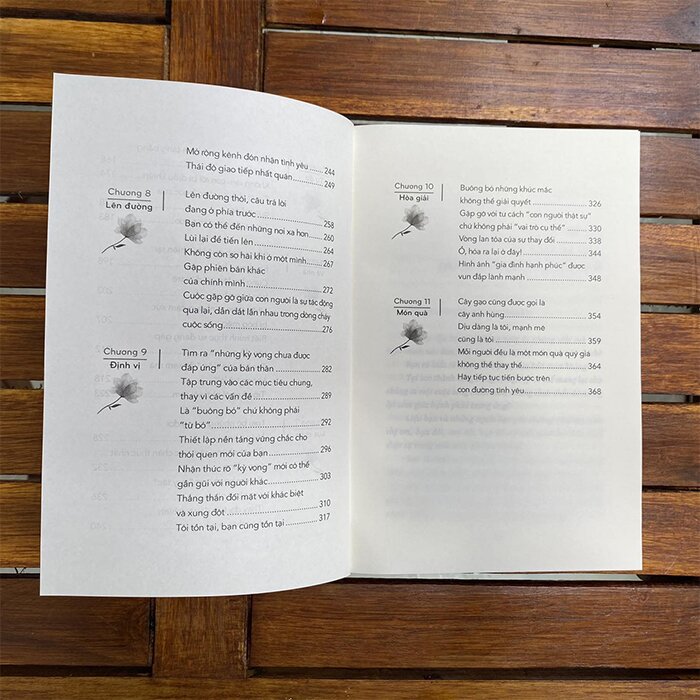 Mở rộng kênh đón nhận tình yêu ...... 244
Thái độ giao tiếp nhất quán ...... 249
Chương 8
Lên đường
Lên đường thôi, câu trả lời
đang ở phía trước ...... 258
Bạn có thể đến những nơi xa hơn ...... 260
Lùi lại để tiến lên ...... 264
Không còn sợ hãi khi ở một mình ...... 267
Gặp phiên bản khác
của chính mình ...... 272
Cuộc gặp gỡ giữa con người là sự tác động
qua lại, dẫn dắt lẫn nhau trong dòng chảy
cuộc sống ...... 276
Chương 9
Định vị
Tìm ra "những kỳ vọng chưa được
đáp ứng" của bản thân ...... 282
Tập trung vào các mục tiêu chung,
thay vì các vấn đề ...... 289
Là "buông bỏ" chứ không phải
"từ bỏ" ...... 292
Thiết lập nền tảng vững chắc cho
thói quen mới của bạn ...... 296
Nhận thức rõ "kỳ vọng" mới có thể
gần gũi với người khác ...... 303
Thẳng thắn đối mặt với khác biệt
và xung đột ...... 310
Tôi tồn tại, bạn cũng tồn tại ...... 317
Chương 10
Hòa giải
Buông bỏ những khúc mắc
không thể giải quyết ...... 326
Gặp gỡ với tư cách "con người thật sự"
chứ không phải "vai trò cụ thể" ...... 330
Vòng lan tỏa của sự thay đổi ...... 338
Ồ, hóa ra là ở đây! ...... 344
Hình ảnh "gia đình hạnh phúc" được
vun đắp lành mạnh ...... 348
Chương 11
Món quà
Cây gạo cũng được gọi là
cây anh hùng ...... 354
Dịu dàng là tôi, mạnh mẽ
cũng là tôi ...... 359
Mỗi người đều là một món quà quý giá
không thể thay thế ...... 364
Hãy tiếp tục tiến bước trên
con đường tình yêu ...... 368